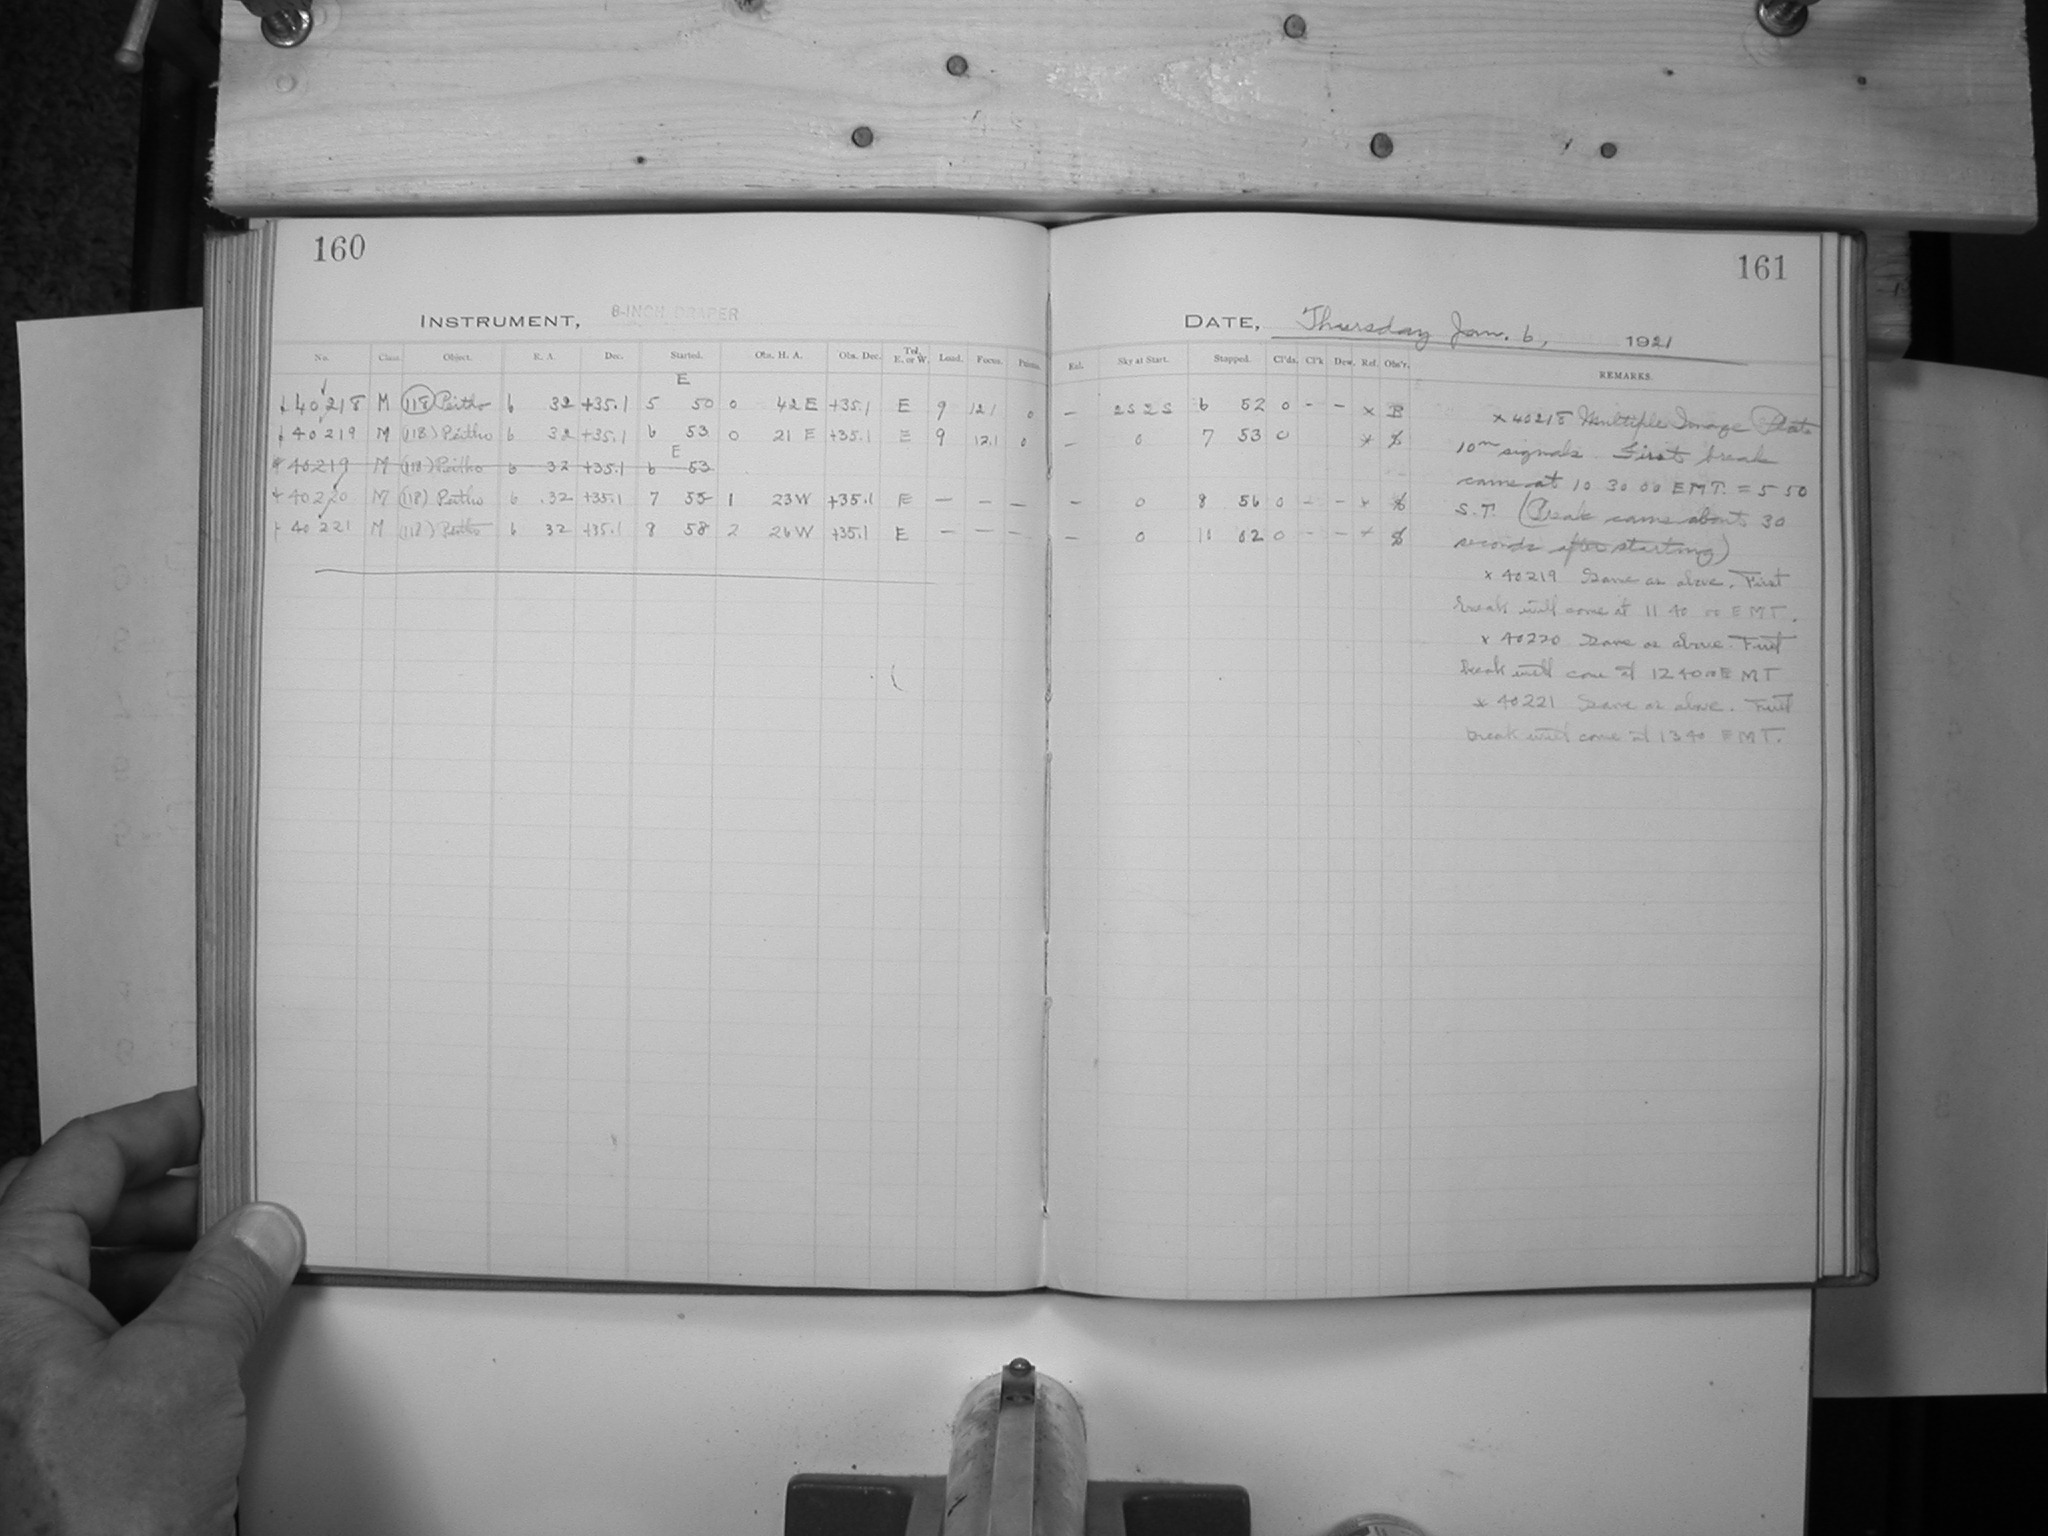 160
161
INSTRUMENT, 8-INCH DRAPER
DATE, Thursday Jan. 6, 1921
No. Class. Object. R. A. Dec. Started. Obs. H. A. Obs. Dec. Tel. E. or W. Load. Focus.
Sky at Start. Stopped. Cl'ds. Cl'k Dew. Ref. Obs'r. REMARKS.
E
40218 M (118) Peitho 6 32 +35.1 5 50 0 42 E +35.1 E 9 12.1 0 - 2S 2S 6 52 0 - - x B
40219 M (118) Peitho 6 32 +35.1 6 53 0 21 E +35.1 E 9 12.1 0 - 0 7 53 0 x
E
40219 M (118) Peitho 6 32 +35.1 6 53
40220 M (118) Peitho 6 32 +35.1 7 55 1 23 W +35.1 E - - - - 0 8 56 0 - - x
40221 M (118) Peitho 6 32 +35.1 8 58 2 26 W +35.1 E - - - - 0 02 0 - - x
x 40218 Multiple Image Plate
10m signals. First break
came at 10 30 00 EMT. = 5 50
S.T. (Break came about 30
seconds after starting)
x 40219 Same as above. First
break will come at 11 40 00 EMT.
x 40220 Same as above. First
break will come at 12 40 00 EMT
x 40221 Same as above. First
break will come at 13 40 EMT.